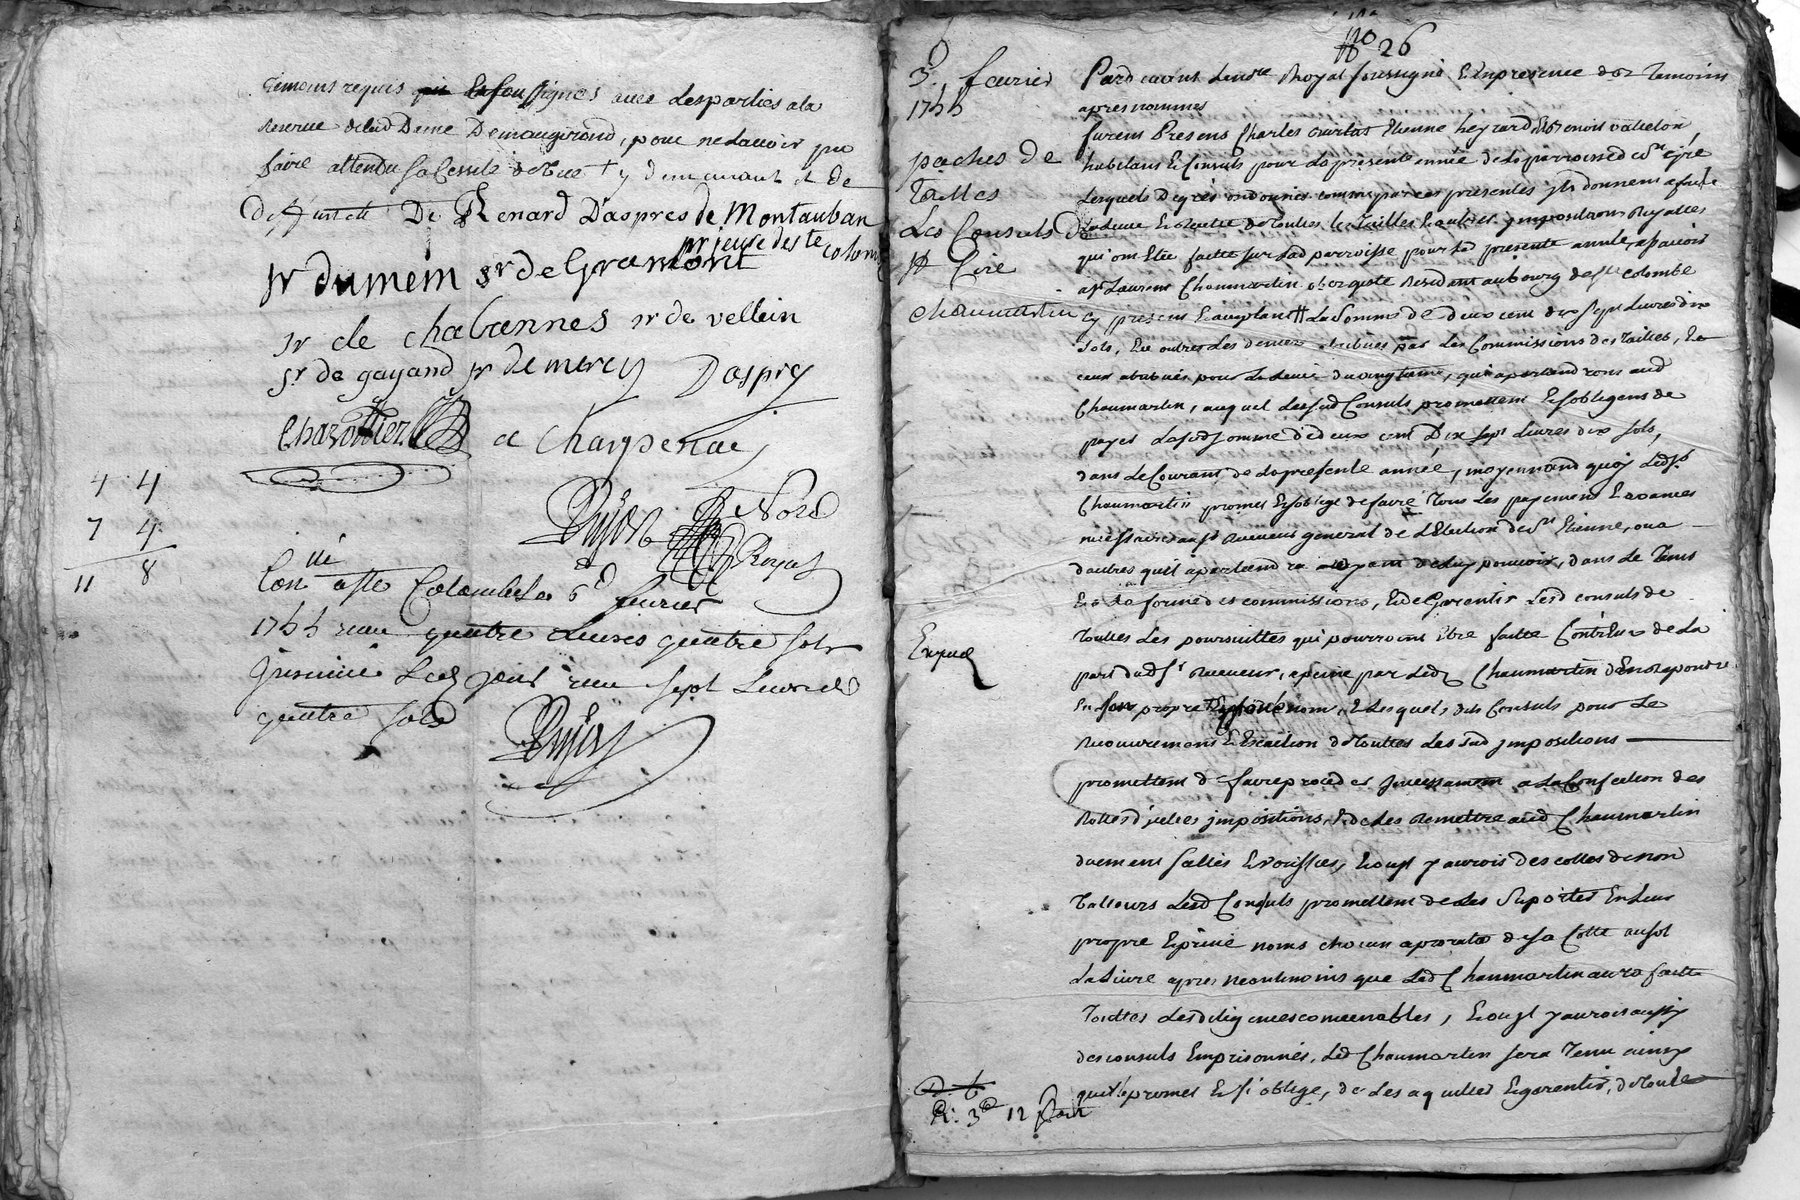 temoins requis qui Ensoussignes avec lesparties ala
Reserve delad Dame Demaugirond, pour nelavoir pu
faire attendu sa Cessité de Vue + y demeurant et de
De Renard D'aspres de Montauban
prieure de ste colombe
sr dumein sr de Gramont
sr de chabannes sr de vellein
sr de gayand sr de mercy Daspres
Charottier de Charpenay
4 4
7 4
11 8
Dujon Nore
Royal
Con lle a ste Colombe le 6e fevrier
1744 receu quatre Livres quatre sols
Insinué Led Jour receu sept Livres
quatre sols
Dujon
no 26
3e fevrier
1744
paches de
Tailles
Les Consuls de
st Cire
chaumartin
Expedié
R: 3e 12 fevr
Pard evant Lenore Royal soussigné Et Enpresence des Temoins
apres nommes
furent Presens Charles ourtat Etienne heyraud Et Benoit valleton
habitans Et Consuls pour la presente année de la parroisse de st Cire
Lesquels Degrés ont donnés comme par ces presentes ils donnent afaire
La levée Et recette de Toutes les Tailles Et autres impositions Royalles
qui ont Eté faitte sur Lad parroisse pour la presente année, a sçavoir
a sr Laurent Chaumartin Residant au bourg de ste colombe
cy present Et acceptant # La Somme de deux cent dix sept Livres dix
sols, Et outre Les deniers atribués par Les Commissions des Tailles, Et
ceux atribués pour La levée du vingtieme, qui apartiendront aud
Chaumartin, auquel Lesdis Consuls promettent Et sobligent de
payer Lasusd somme de deux cent Dix sept Livres dix sols,
dans Le Courant de La presente année, moyennand quoy Led sr
Chaumartin promet Et soblige de faire Tous Les payemens Et avances
necessaires au sr Receveur general de L'Election de st Etienne, ou a
d'autres quil apartiendra ayant deluy pouvoir, dans Le Tems
Et a La forme des commissions, Et de Garentir Lesd consuls de
Toutes Les poursuittes qui pourroient être faitte Contreux de La
part dud sr Receveur, a peine par Led Chaumartin d'En Repondre
En son propre Et privé nom, Et Lesquels dits Consuls pour Le
Recouvrement Et Exaction de Toutes Les susd impositions
promettent de faire proceder Incessament a La Confection des
Rolles d'icelles impositions, Et de Les Remettre aud Chaumartin
duement faittes Et verifiées, Et ou Il y auroit des cottes de non
Valleurs Lesd Consuls promettent de Les Suporter En Leur
propre Et privé noms chacun aprorata de sa Cotte au sol
La Livre apres neantmoins que Led Chaumartin aura faitte
Touttes Les diligences convenables, Et ou Il y auroit aussy
des consuls Emprisonnés, Led Chaumartin sera Tenu ainsy
quil promet Et s'i oblige, de Les aquitter Et garentir, de Toute